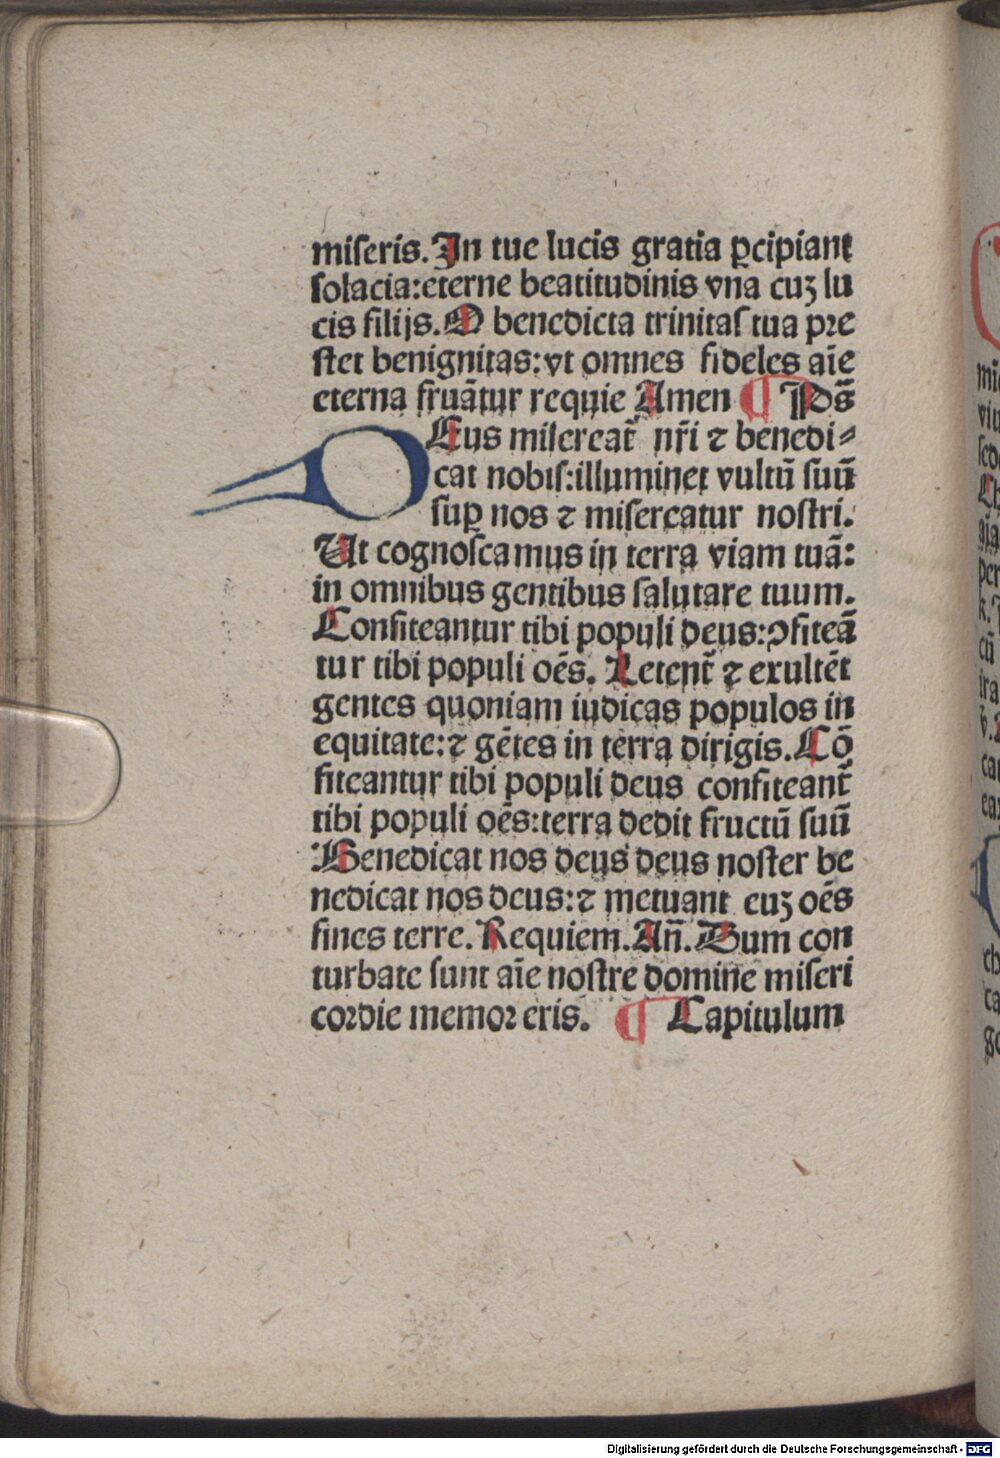 miseris. In tue lucis gratia ꝑcipiant
solacia:eterne beatitudinis vna cuꝫ lu
cis filijs. O benedicta trinitas tua pre
stet benignitas: vt omnes fideles aīe
eterna fruātur requie Amen ¶ Ps̄
DEus misereat᷑ nr̄i ⁊ benedi⸗
cat nobis:illuminet vultū suū
suꝑ nos ⁊ misereatur nostri.
Ut cognoscamus in terra viam tuā:
in omnibus gentibus salutare tuum.
Confiteantur tibi populi deus:ꝯfiteā
tur tibi populi oēs. Letent᷑ ⁊ exultēt
gentes quoniam iudicas populos in
equitate:⁊ gētes in terra dirigis. Cō
fiteantur tibi populi deus confiteant᷑
tibi populi oēs:terra dedit fructū suū
Benedicat nos deus deus noster be
nedicat nos deus:⁊ metuant euꝫ oēs
fines terre. Requiem. An̄. Dum con
turbate sunt aīe nostre domine miseri
cordie memor eris. ¶ Capitulum
Digitalisierung gefördert durch die Deutsche Forschungsgemeinschaft - DFG